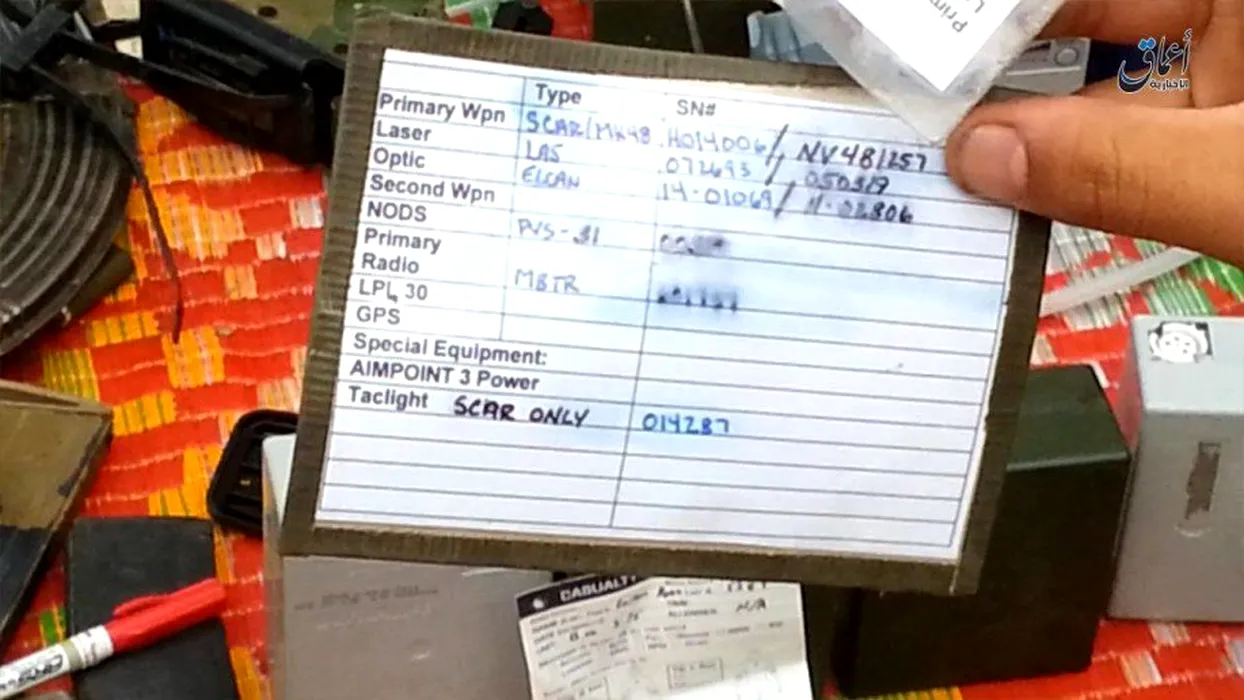 أعماق
الإخبارية
Type SN#
Primary Wpn SCAR/MK48 H014006/ NV481257
Laser LA5 072693 / 050319
Optic ELCAN 14-01069/ 11-02806
Second Wpn
NODS PVS-31
Primary
Radio MBTR
LPL 30
GPS
Special Equipment:
AIMPOINT 3 Power
Taclight SCAR ONLY 014287
CASUALTY
N/A